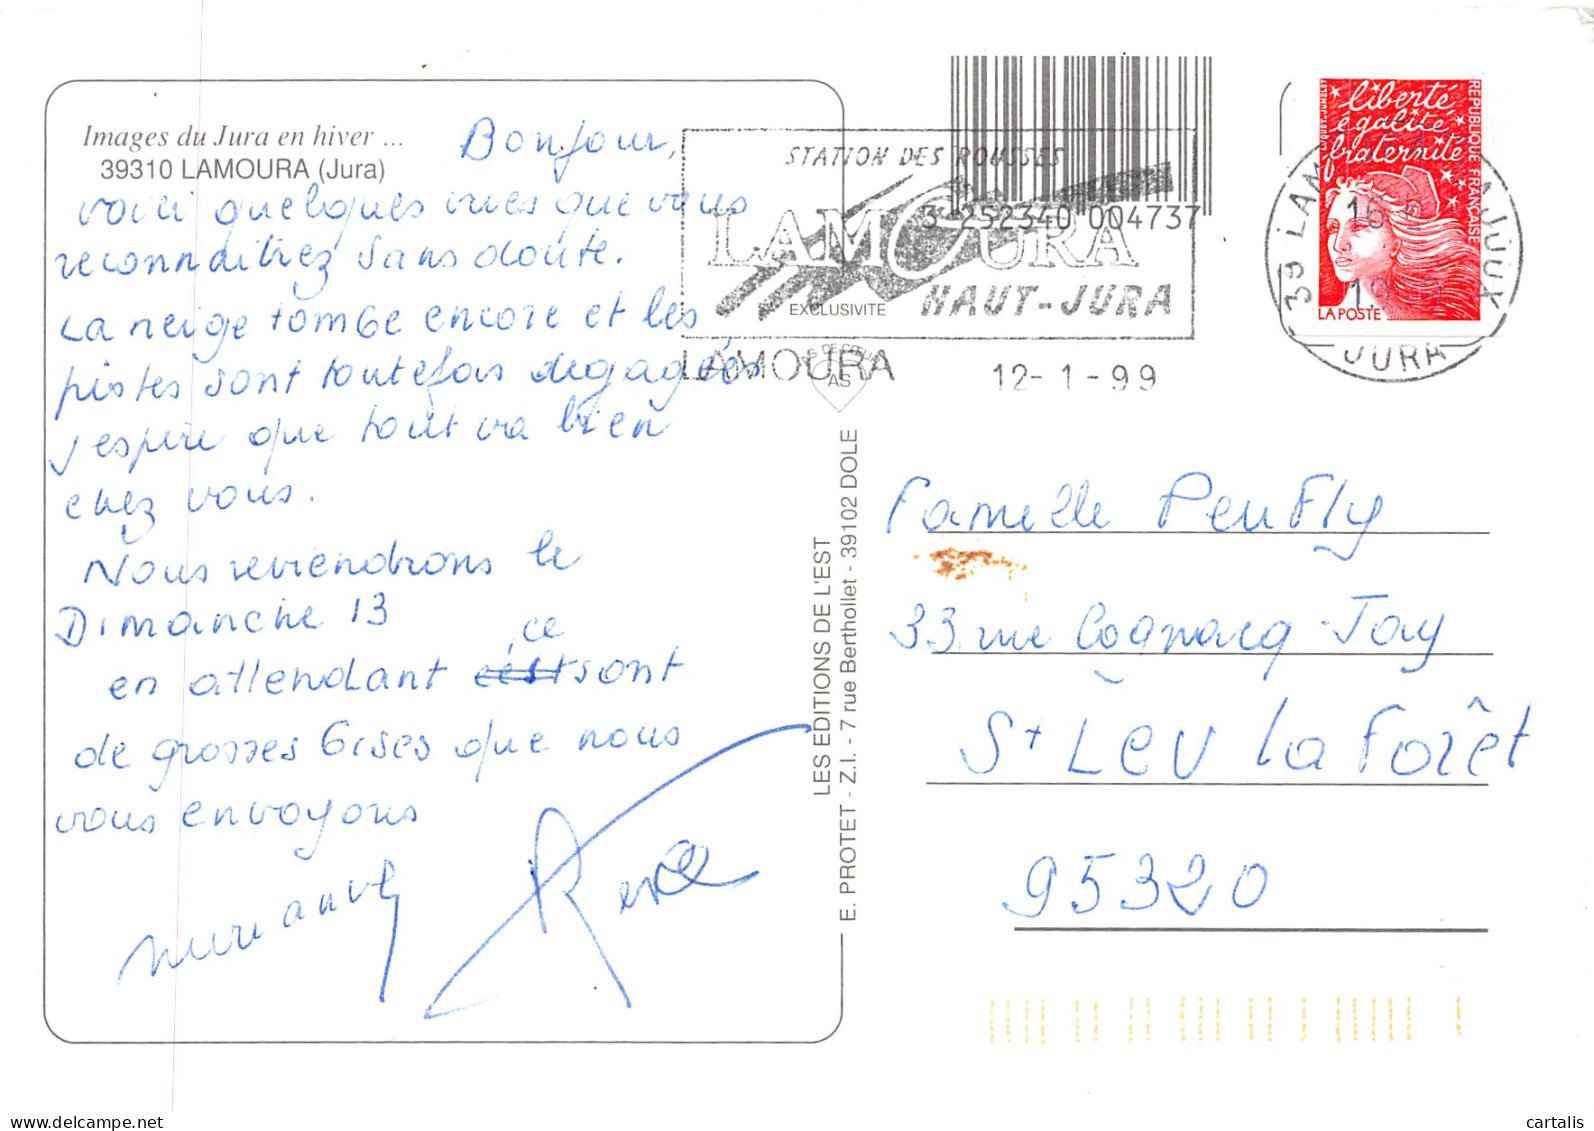 Images du Jura en hiver ...
39310 LAMOURA (Jura)
Bonjour,
voici quelques vues que vous
reconnaitrez sans doute.
La neige tombe encore et les
pistes sont toutefois dégagées
j'espere que tout va bien
chez vous.
Nous reviendrons le
Dimanche 13
en attendant ce sont
de grosses bises que nous
vous envoyons
STATION DES ROUSSES
LAMOURA
HAUT-JURA
3 252340 004737
EXCLUSIVITE
AS
LAMOURA
12-1-99
39 LAM
JURA
liberté
égalité
fraternité
REPUBLIQUE FRANÇAISE
LA POSTE
LES EDITIONS DE L'EST
E. PROTET - Z.I. - 7 rue Berthollet - 39102 DOLE
Famille Peu Fly
33 rue Cognacq-Jay
St Leu la Forêt
95320
cartalis
www.delcampe.net